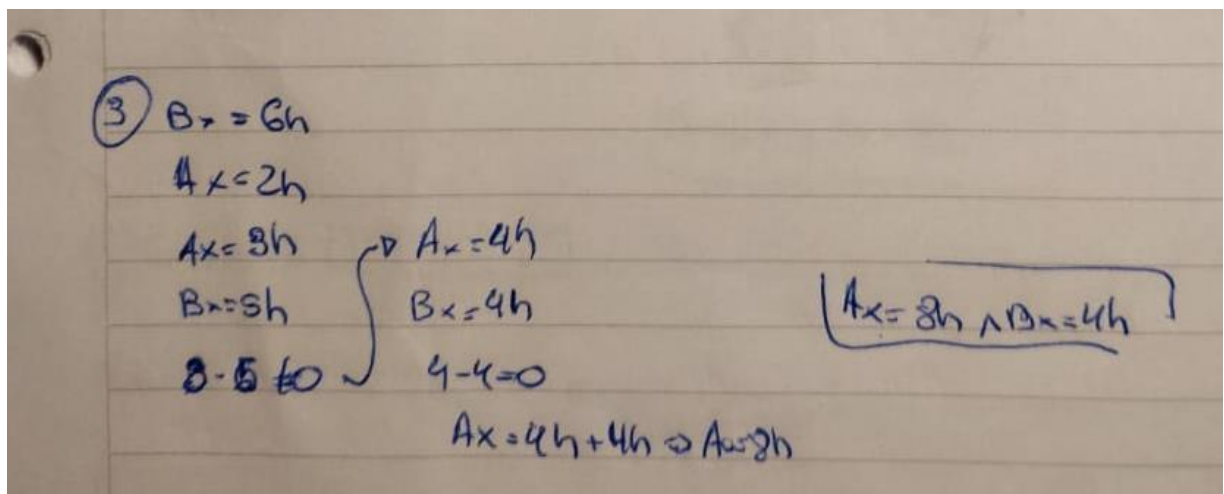 ③ Bx = 6h
Ax = 2h
Ax = 3h
Bx = 5h
3-5 ≠0
Ax = 4h
Bx = 4h
4-4=0
Ax = 4h + 4h => Ax=8h
Ax = 8h ∧ Bx = 4h